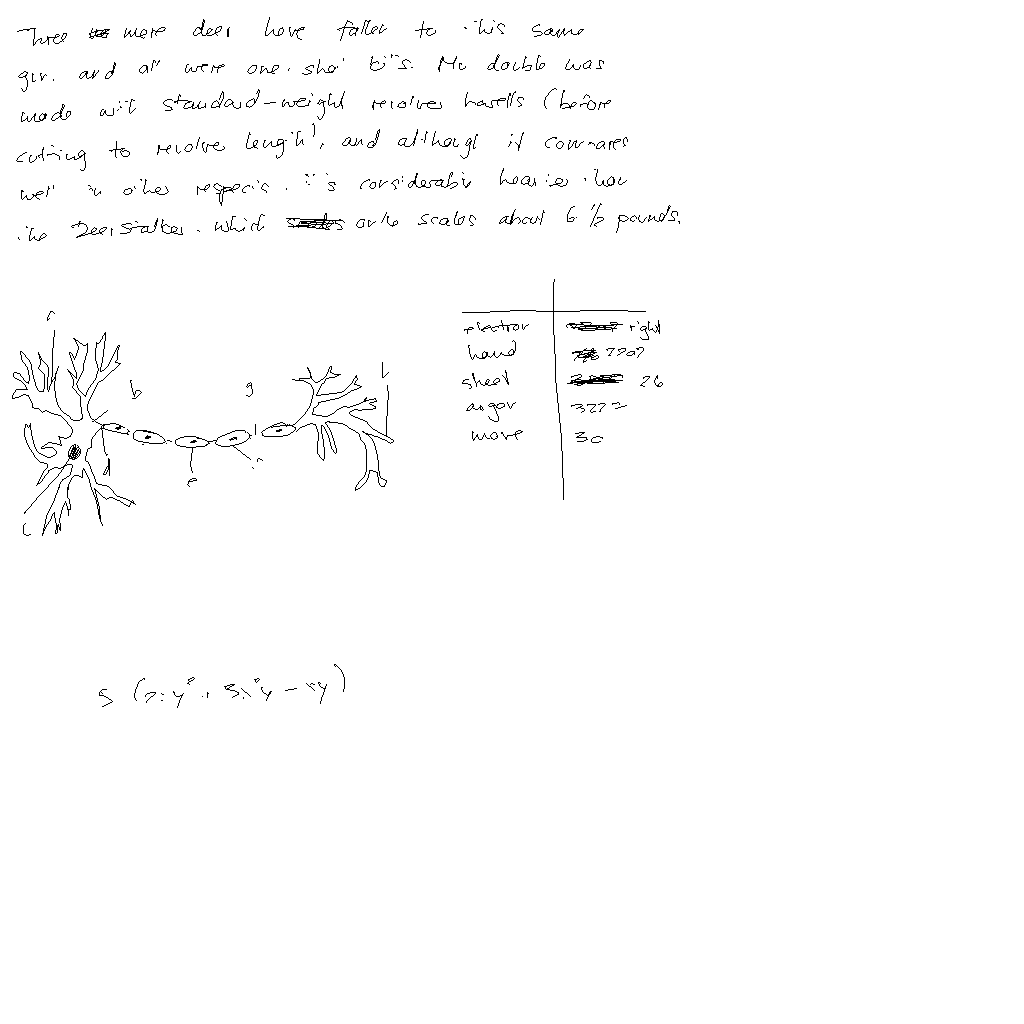 Three more deer have fallen to this same
gun, and all were one-shot kills. My double was
made with standard-weight revolver barrels (before
cutting to revolver length), and although it compares
well in other respects, it is considerably heavier than
the Deerstalker, which only scales about 6 1/2 pounds.
electron right
hand 7707
sheet 26
3272
move 30
b
g